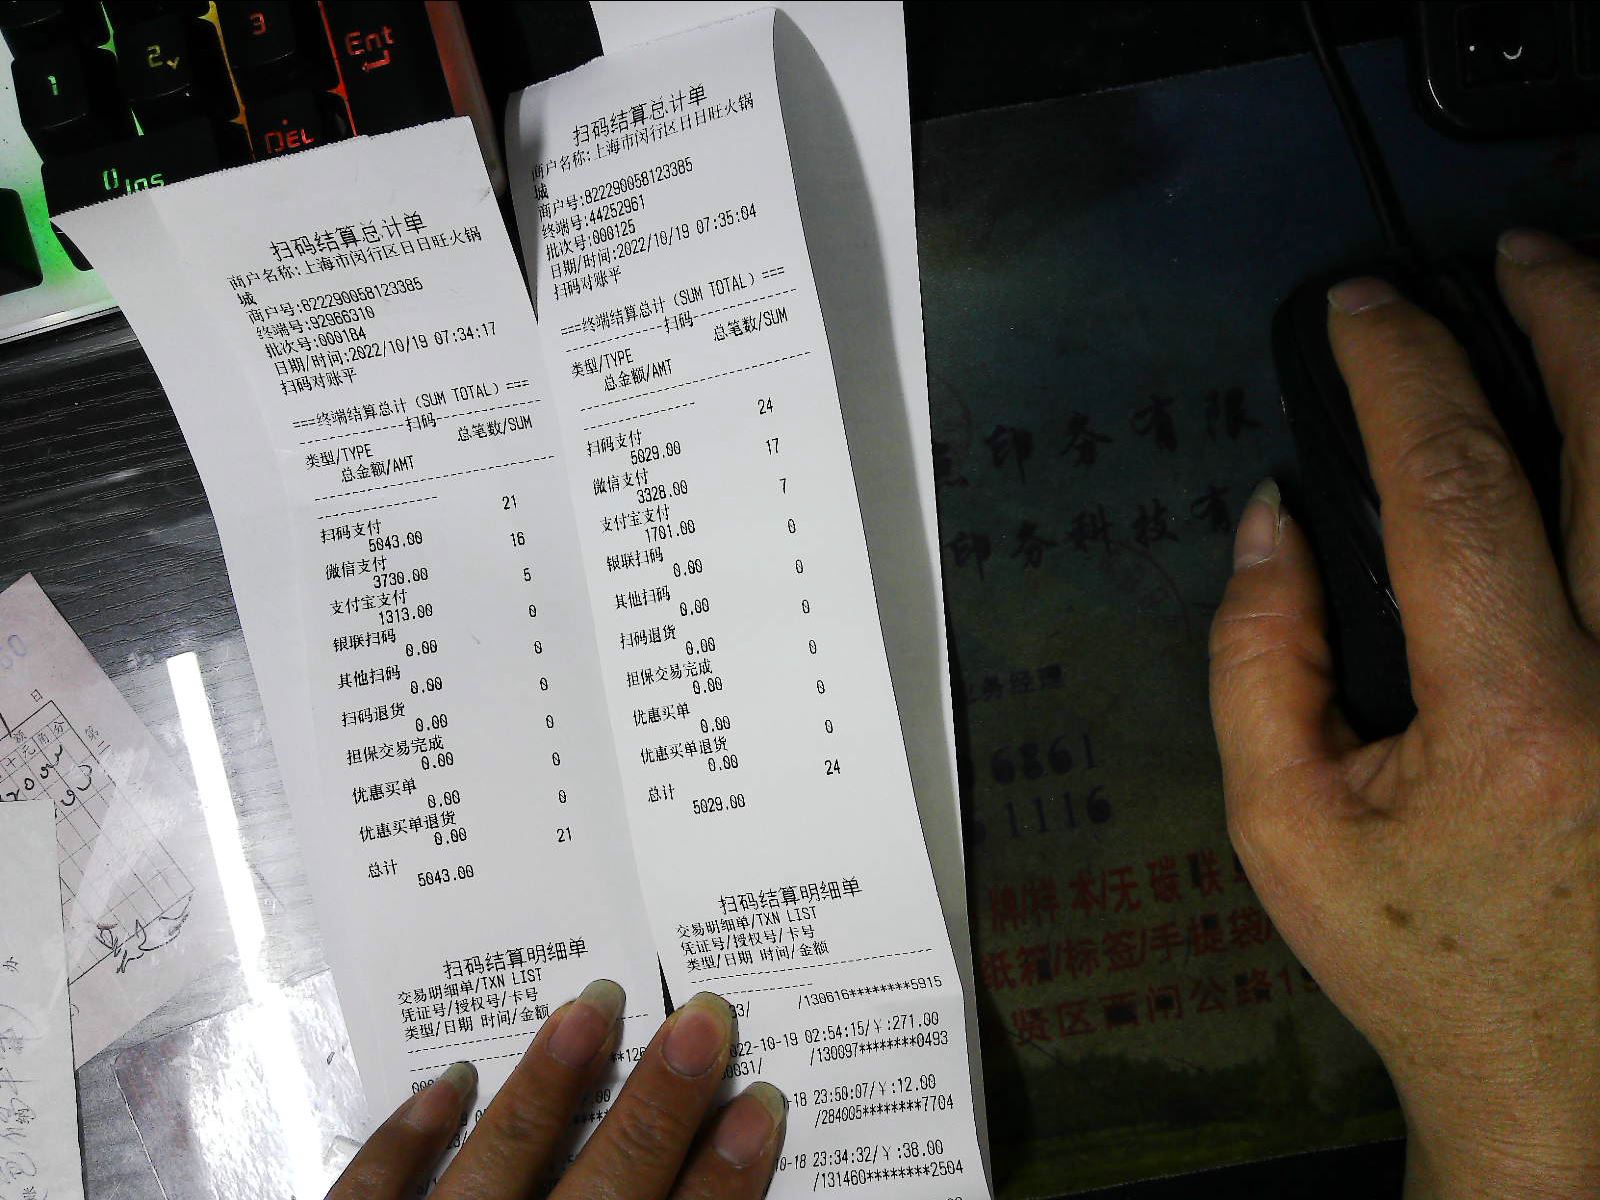 1
2
3
Ent
DEL
0 Ins
扫码结算总计单
商户名称:上海市闵行区日日旺火锅
城
商户号:822290058123385
终端号:92966310
批次号:000184
日期/时间:2022/10/19 07:34:17
扫码对账平
===终端结算总计(SUM TOTAL)===
扫码
类型/TYPE 总笔数/SUM
总金额/AMT
扫码支付 21
5043.00
微信支付 16
3730.00
支付宝支付 5
1313.00
银联扫码 0
0.00
其他扫码 0
0.00
扫码退货 0
0.00
担保交易完成 0
0.00
优惠买单 0
0.00
优惠买单退货 0
0.00
总计 21
5043.00
扫码结算明细单
交易明细单/TXN LIST
凭证号/授权号/卡号
类型/日期 时间/金额
扫码结算总计单
商户名称:上海市闵行区日日旺火锅
城
商户号:822290058123385
终端号:44252961
批次号:000125
日期/时间:2022/10/19 07:35:04
扫码对账平
===终端结算总计(SUM TOTAL)===
扫码
类型/TYPE 总笔数/SUM
总金额/AMT
扫码支付 24
5029.00
微信支付 17
3328.00
支付宝支付 7
1701.00
银联扫码 0
0.00
其他扫码 0
0.00
扫码退货 0
0.00
担保交易完成 0
0.00
优惠买单 0
0.00
优惠买单退货 0
0.00
总计 24
5029.00
扫码结算明细单
交易明细单/TXN LIST
凭证号/授权号/卡号
类型/日期 时间/金额
/130616********5915
22-10-19 02:54:15/¥:271.00
/130097********0493
-18 23:50:07/¥:12.00
/284005********7704
0-18 23:34:32/¥:38.00
/131460********2504
印务有限
印务科技有
务经理
6861
1116
样本/无碳联
纸箱/标签/手提袋
贤区